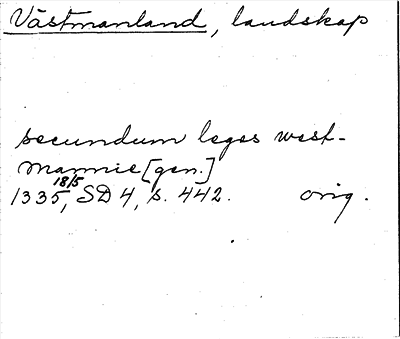 Västmanland, landskap
secundum leges west-
mannie [gen.]
1335 18/5, SD 4, s. 442. orig.